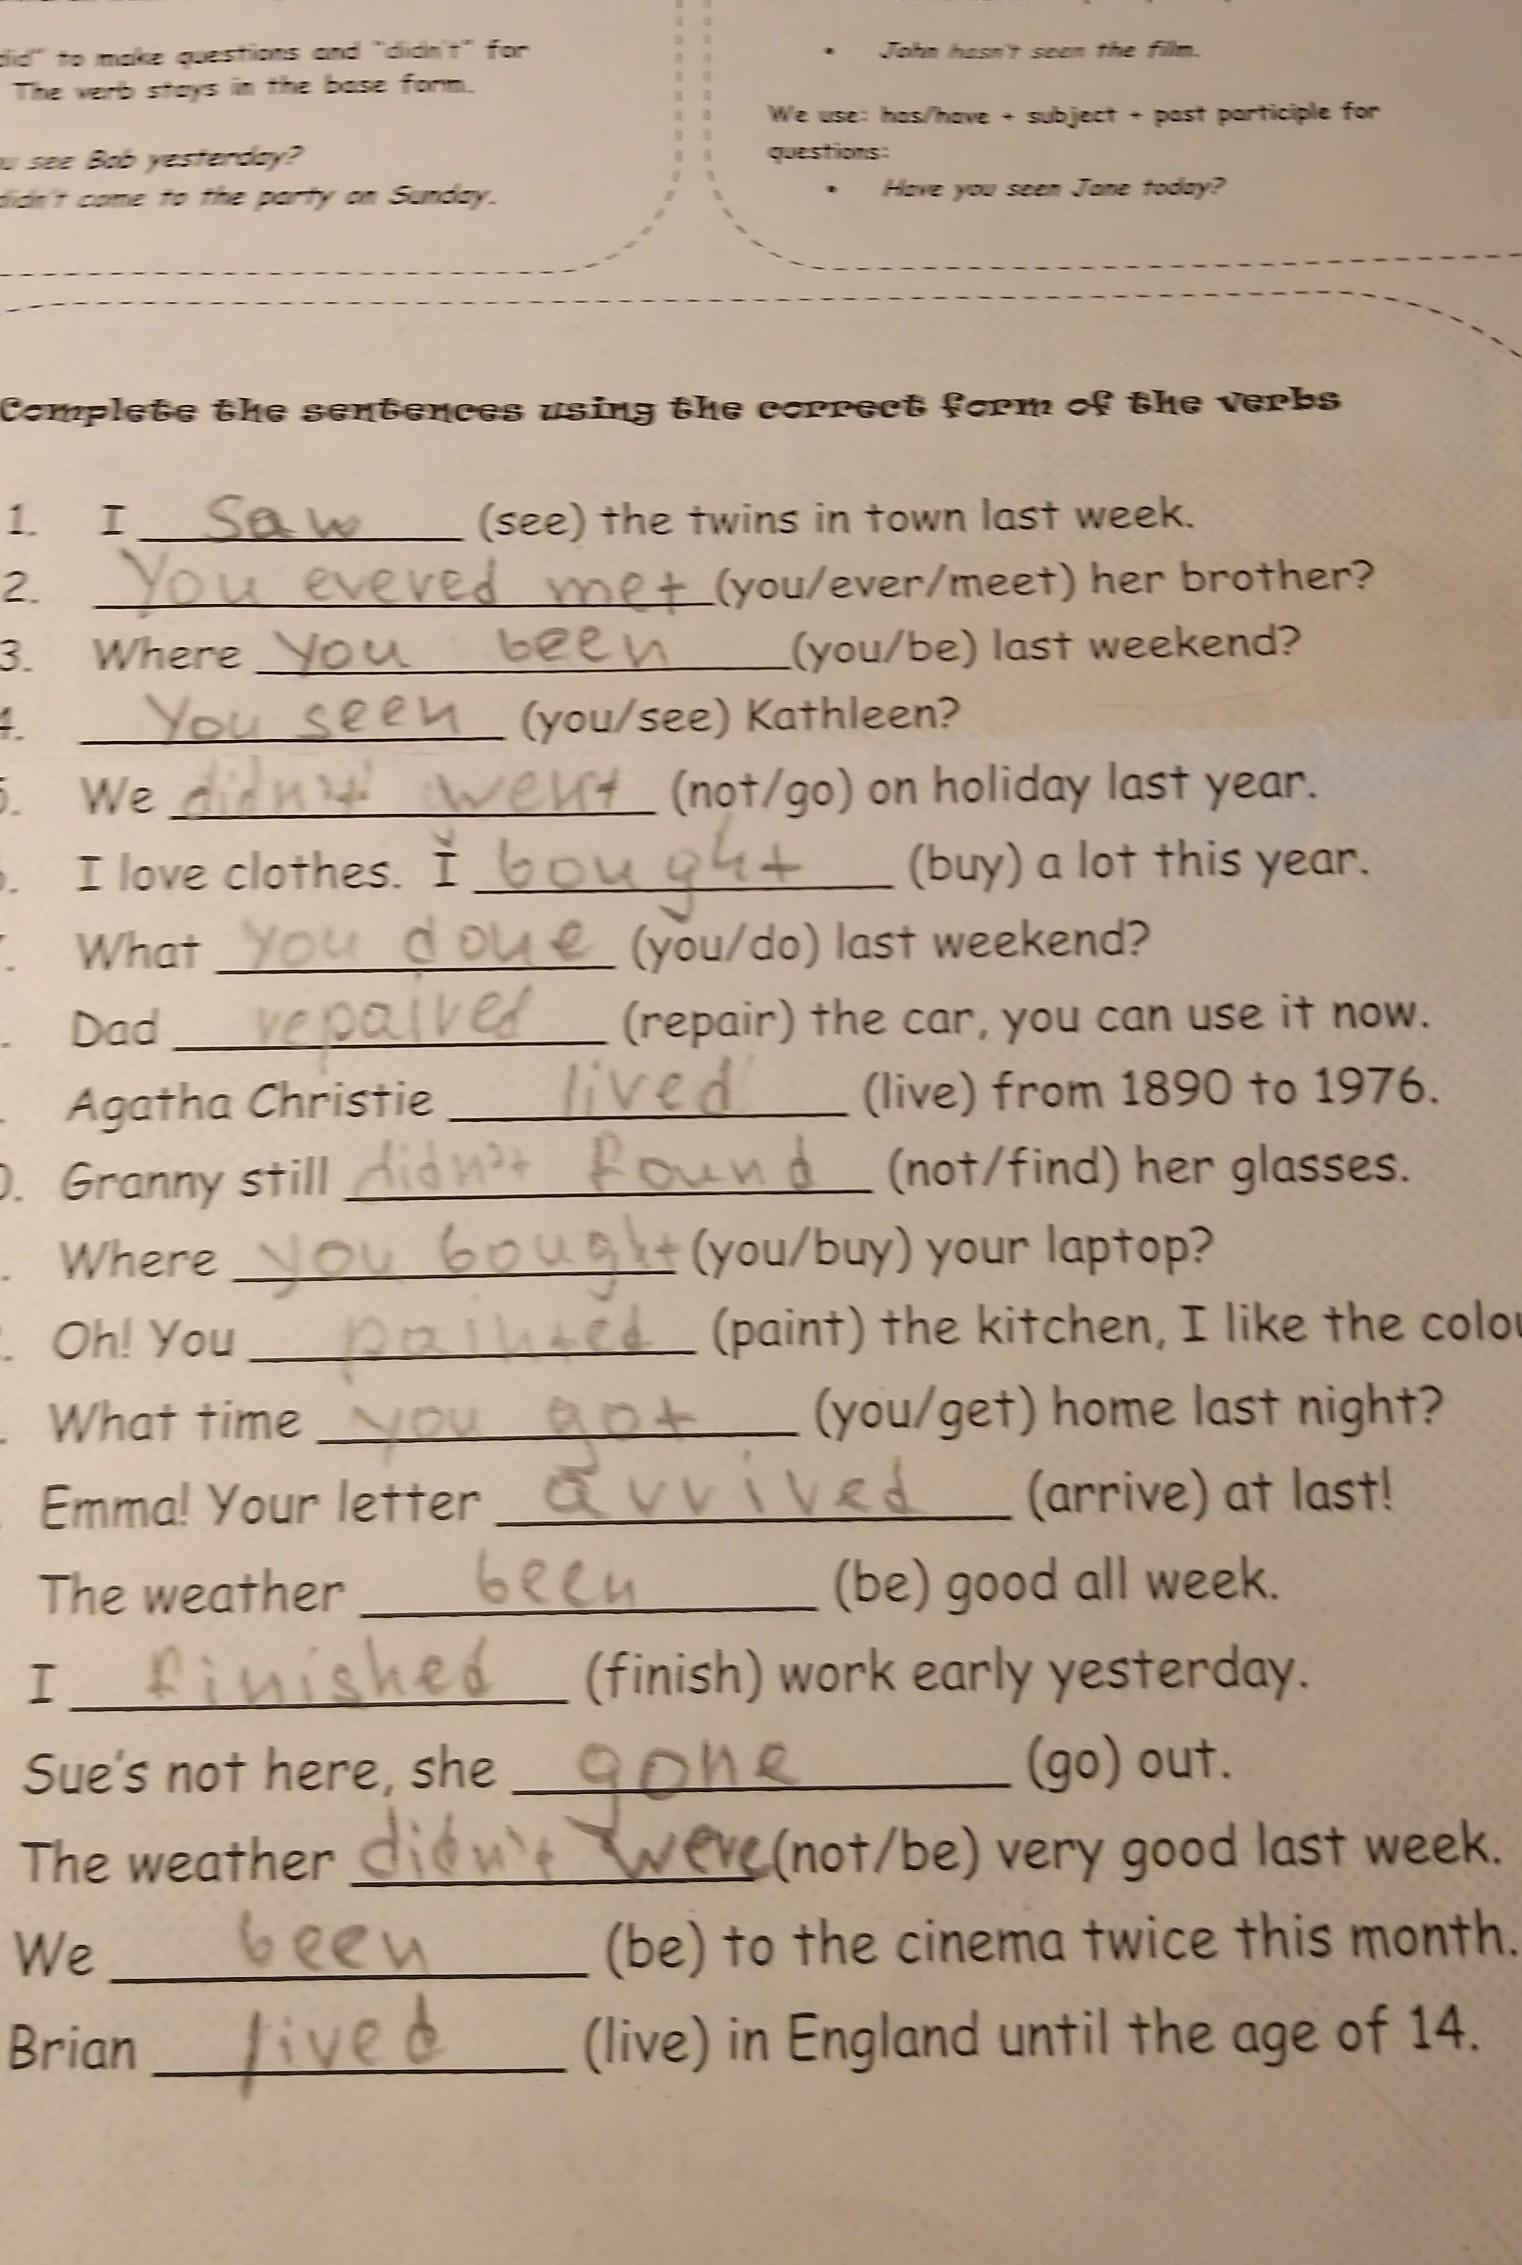 did" to make questions and "didn't" for
The verb stays in the base form.
u see Bob yesterday?
didn't come to the party on Sunday.
• John hasn't seen the film.
We use: has/have + subject + past participle for
questions:
• Have you seen Jane today?
Complete the sentences using the correct form of the verbs
1. I saw (see) the twins in town last week.
2. You evered met (you/ever/meet) her brother?
3. Where you been (you/be) last weekend?
4. You seen (you/see) Kathleen?
5. We didn't went (not/go) on holiday last year.
. I love clothes. I bought (buy) a lot this year.
. What you done (you/do) last weekend?
. Dad repaired (repair) the car, you can use it now.
. Agatha Christie lived (live) from 1890 to 1976.
0. Granny still didn't found (not/find) her glasses.
. Where you bought (you/buy) your laptop?
. Oh! You painted (paint) the kitchen, I like the colou
. What time you got (you/get) home last night?
Emma! Your letter arrived (arrive) at last!
The weather been (be) good all week.
I finished (finish) work early yesterday.
Sue's not here, she gone (go) out.
The weather didn't were (not/be) very good last week.
We been (be) to the cinema twice this month.
Brian lived (live) in England until the age of 14.